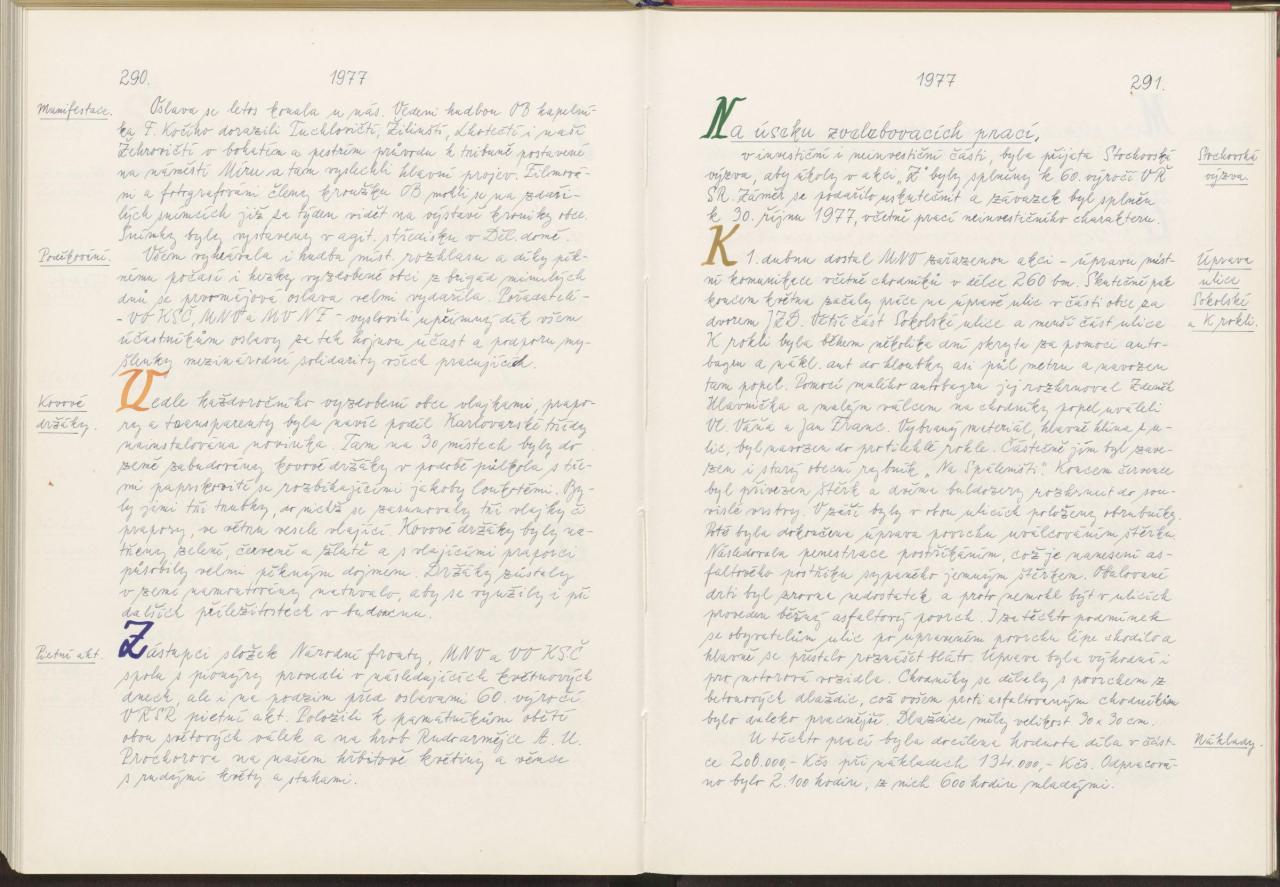 290.
1977
Manifestace.
Oslava se letos konala u nás. Vedeni hudbou OB kapelní-
ka F. Kočího dorazili Tuchlovičtí, Žilinští, Lhotečtí i naši
Žehrovičtí v bohatém a pestrém průvodu k tribuně postavené
na náměstí Míru a tam vyslechli hlavní projev. Filmová-
ni a fotografováni členy kroužku OB mohli se na zdaři-
lých snímcích již za týden vidět na výstavě kroniky obce.
Snímky byly vystaveny v agit. středisku v Děl. domě.
Poděkování.
Všem vyhrávala i hudba míst. rozhlasu a díky pěk-
nému počasí i hezky vyzdobené obci z brigád minulých
dnů se prvomájová oslava velmi vydařila. Pořadatelé -
- VO KSČ, MNV a MV NF - vyslovili upřímný dík všem
účastníkům oslavy za tak hojnou účast a podporu my-
šlenky mezinárodní solidarity všech pracujících.
Kovové
držáky.
Vedle každoročního vyzdobení obce vlajkami, prapo-
ry a transparenty byla navíc podél Karlovarské třídy
nainstalována novinka. Tam na 30 místech byly do
země zabudovány kovové držáky v podobě půlkola s tře-
mi paprskovitě se rozbíhajícími jakoby loukotěmi. By-
ly jimi tři trubky, do nichž se zasunovaly tři vlajky či
prapory, ve větru vesele vlající. Kovové držáky byly na-
třeny zeleně, červeně a žlutě a s vlajícími prapory
působily velmi pěkným dojmem. Držáky zůstaly
v zemi namontovány natrvalo, aby se využily i při
dalších příležitostech v budoucnu.
Pietní akt.
Zástupci složek Národní fronty, MNV a VO KSČ
spolu s pionýry provedli v následujících květnových
dnech, ale i na podzim před oslavami 60. výročí
VŘSR pietní akt. Položili k památníkům obětí
obou světových válek a na hrob Rudoarmějce A. U.
Prochorova na našem hřbitově květiny a věnce
s rudými květy a stuhami.
1977
291.
Na úseku zvelebovacích prací,
v investiční i neinvestiční části, byla přijata Stochovská
výzva, aby úkoly v akci „Z" byly splněny k 60. výročí VŘ
SR. Záměr se podařilo uskutečnit a závazek byl splněn
k 30. říjnu 1977, včetně prací neinvestičního charakteru.
Stochovská
výzva.
K 1. dubnu dostal MNV zařazenou akci - úpravu míst-
ní komunikace včetně chodníků v délce 260 bm. Skutečně pak
koncem května začaly práce na úpravě ulic v části obce za
dvorem JZD. Větší část Sokolské ulice a menší část ulice
K rokli byla během několika dní skryta za pomoci auto-
bagru a nákl. aut do hloubky asi půl metru a navozen
tam popel. Pomocí malého autobagru jej rozhrnoval Zdeněk
Hlavnička a malým válcem na chodníky popel uváleli
Vl. Váňa a Jan Franc. Vybraný materiál, hlavně hlína z u-
lic, byl navozen do protilehlé rokle. Částečně jím byl zave-
zen i starý obecní rybník „Na Spáleništi". Koncem července
byl přivezen štěrk a dvěma buldozery rozhrnut do sou-
vislé vrstvy. V září byly v obou ulicích položeny obrubníky.
Poté byla dokončena úprava povrchu uválcováním štěrku.
Následovala penetrace postřikáním, což je nanesení as-
faltového postřiku sypaného jemným štěrkem. Obalované
drti byl zrovna nedostatek a proto nemohl být v ulicích
proveden běžný asfaltový povrch. I za těchto podmínek
se obyvatelům ulic po upraveném povrchu lépe chodilo a
hlavně se přestalo roznášet bláto. Úprava byla výhodná i
pro motorová vozidla. Chodníky se dělaly s povrchem z
betonových dlaždic, což ovšem proti asfaltovaným chodníkům
bylo daleko pracnější. Dlaždice měly velikost 30 x 30 cm.
Úprava
ulice
Sokolské
a K rokli.
U těchto prací byla docílena hodnota díla v část-
ce 208.000,- Kčs při nákladech 134.000,- Kčs. Odpracová-
no bylo 2.100 hodin, z nich 600 hodin mladými.
Náklady.